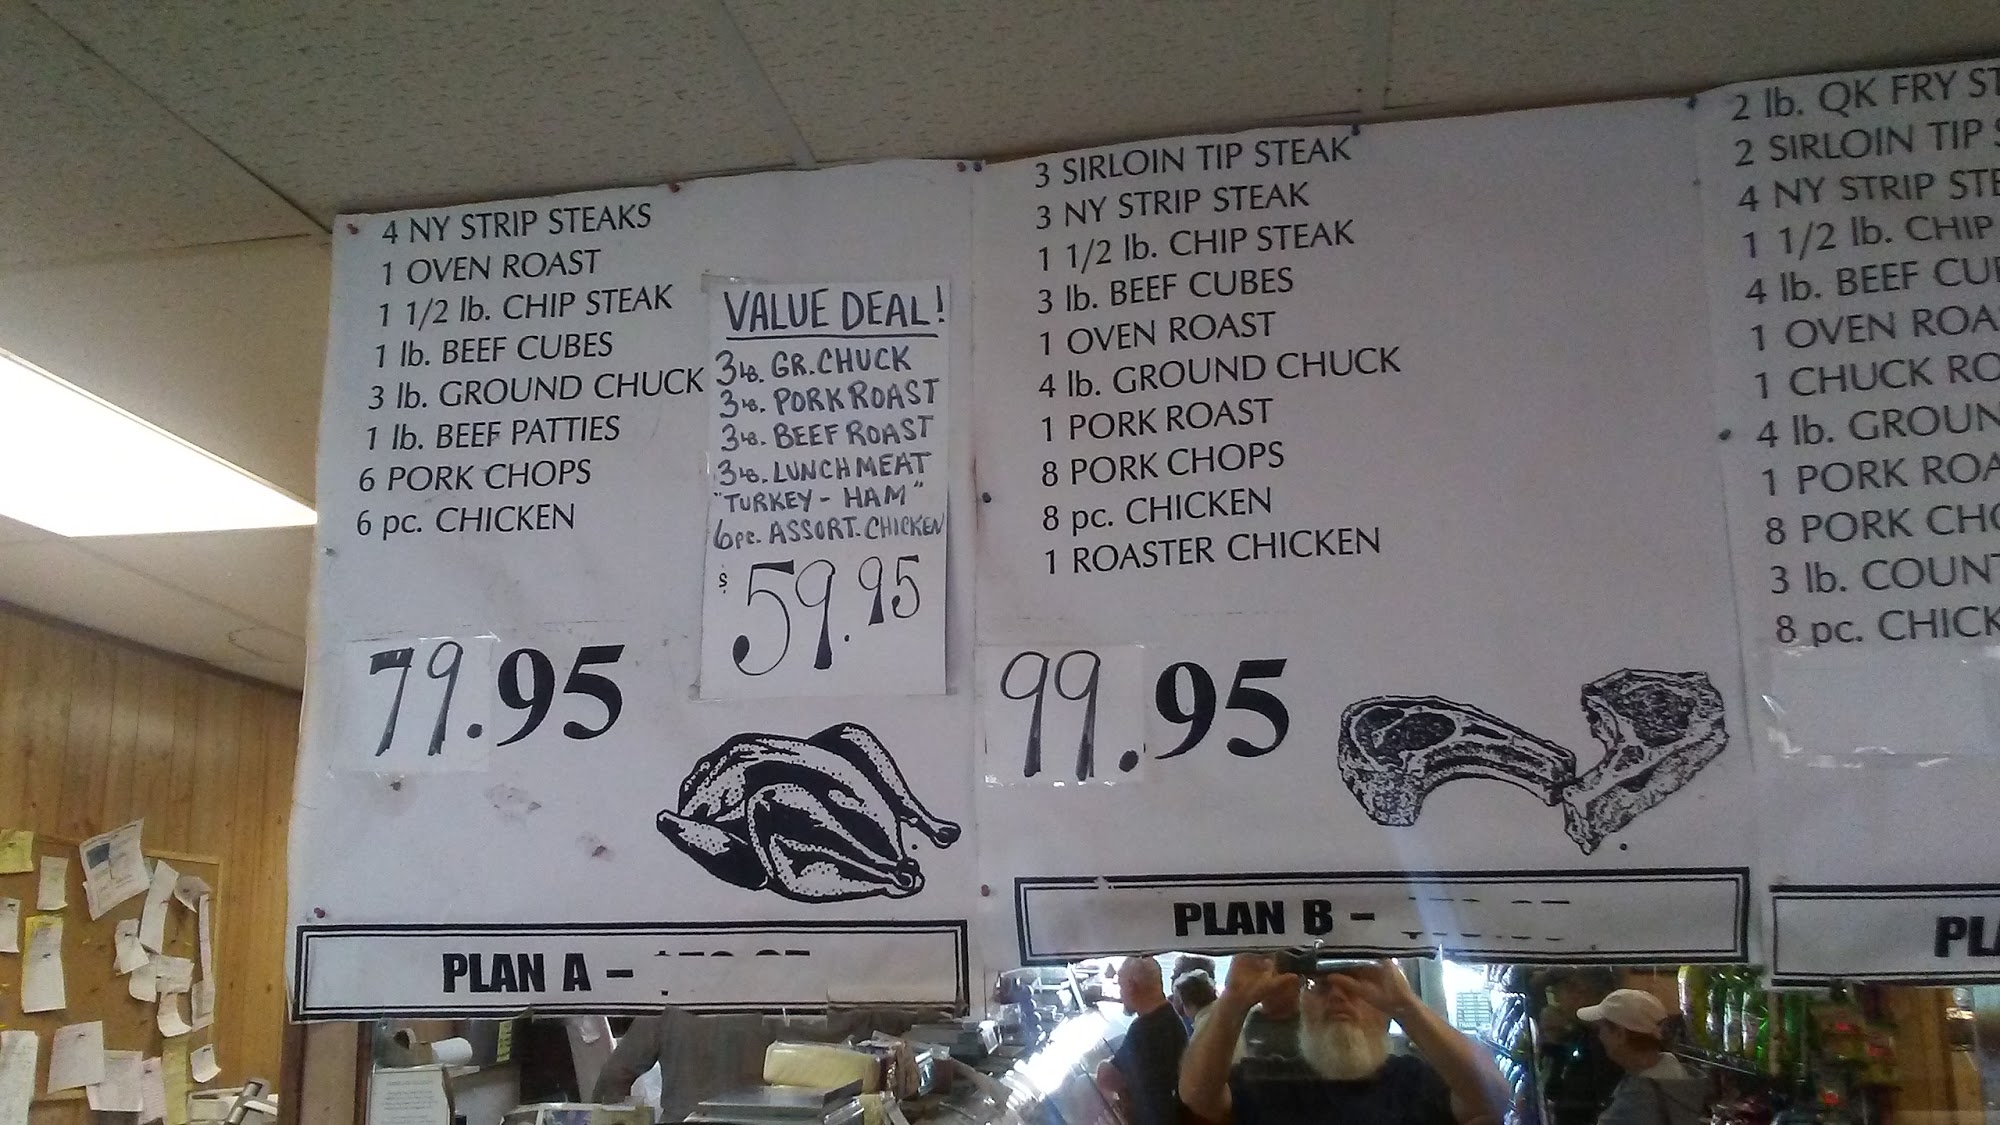 4 NY STRIP STEAKS
1 OVEN ROAST
1 1/2 lb. CHIP STEAK
1 lb. BEEF CUBES
3 lb. GROUND CHUCK
1 lb. BEEF PATTIES
6 PORK CHOPS
6 pc. CHICKEN
79.95
PLAN A –
VALUE DEAL!
3 LB. GR. CHUCK
3 LB. PORK ROAST
3 LB. BEEF ROAST
3 LB. LUNCHMEAT
"TURKEY - HAM"
6 pc. ASSORT. CHICKEN
$59.95
3 SIRLOIN TIP STEAK
3 NY STRIP STEAK
1 1/2 lb. CHIP STEAK
3 lb. BEEF CUBES
1 OVEN ROAST
4 lb. GROUND CHUCK
1 PORK ROAST
8 PORK CHOPS
8 pc. CHICKEN
1 ROASTER CHICKEN
99.95
PLAN B –
2 lb. QK FRY ST
2 SIRLOIN TIP S
4 NY STRIP STE
1 1/2 lb. CHIP
4 lb. BEEF CU
1 OVEN ROA
1 CHUCK RO
4 lb. GROUN
1 PORK ROA
8 PORK CHO
3 lb. COUNT
8 pc. CHICK
PLA